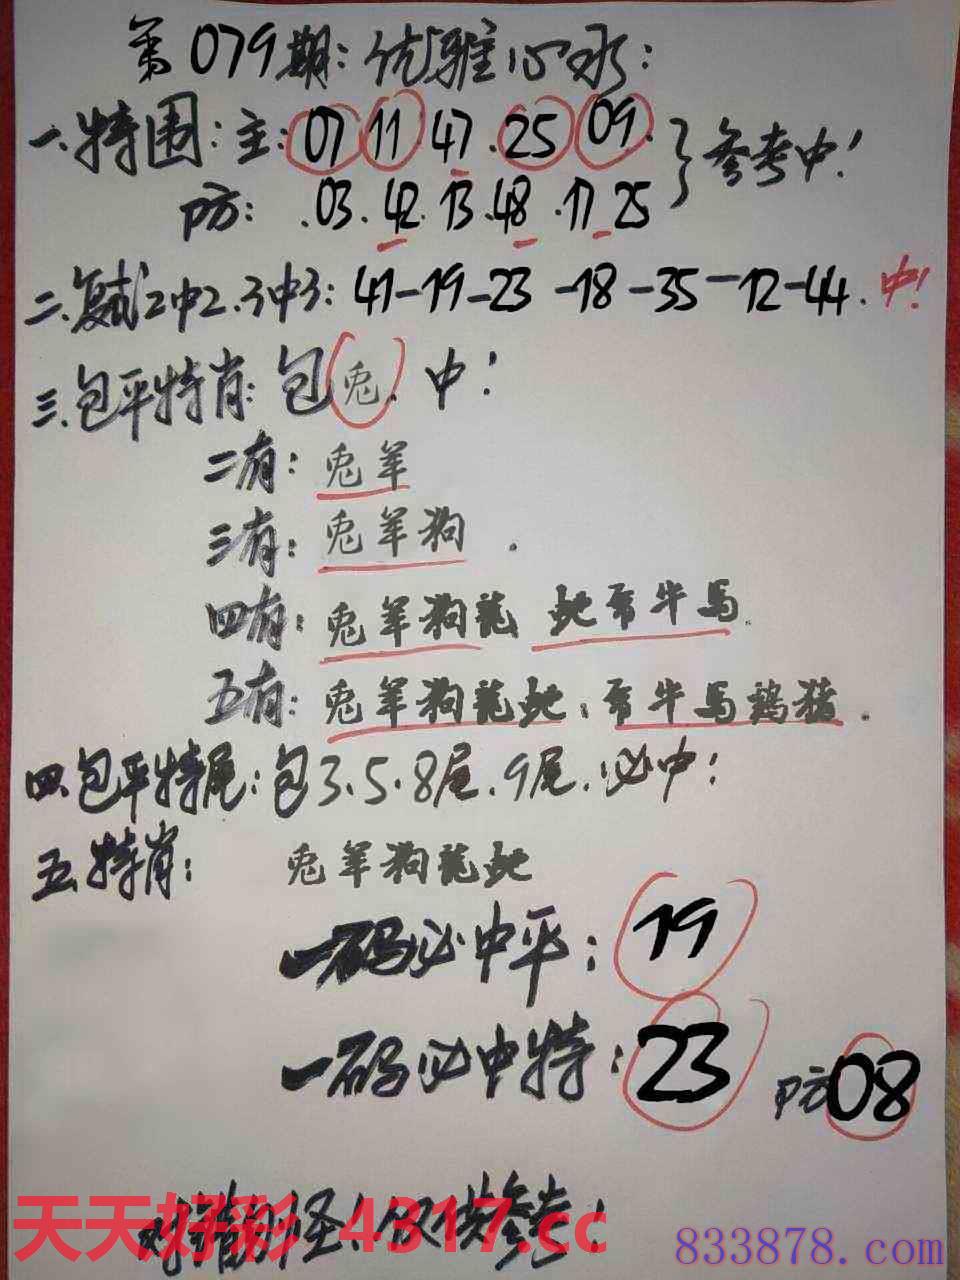 第079期:优雅心水:
一.特围:主:07 11.47.25 09.
防:.03.42.13.48.17 25
参考中!
二.复式2中2.3中3:41-19-23-18-35-12-44.中!
三.包平特肖:包兔.中!
二有:兔羊
三有:兔羊狗.
四有:兔羊狗龍 蛇 牛马.
五有:兔羊狗龍蛇; 牛马鷄猪.
四.包平特尾:包3.5.8尾.9尾.必中!
五.特肖: 兔羊狗龍蛇
一码必中平:19
一码必中特:23 防08
对错勿怪!仅供参考!
天天好彩 4317.cc
833878.com